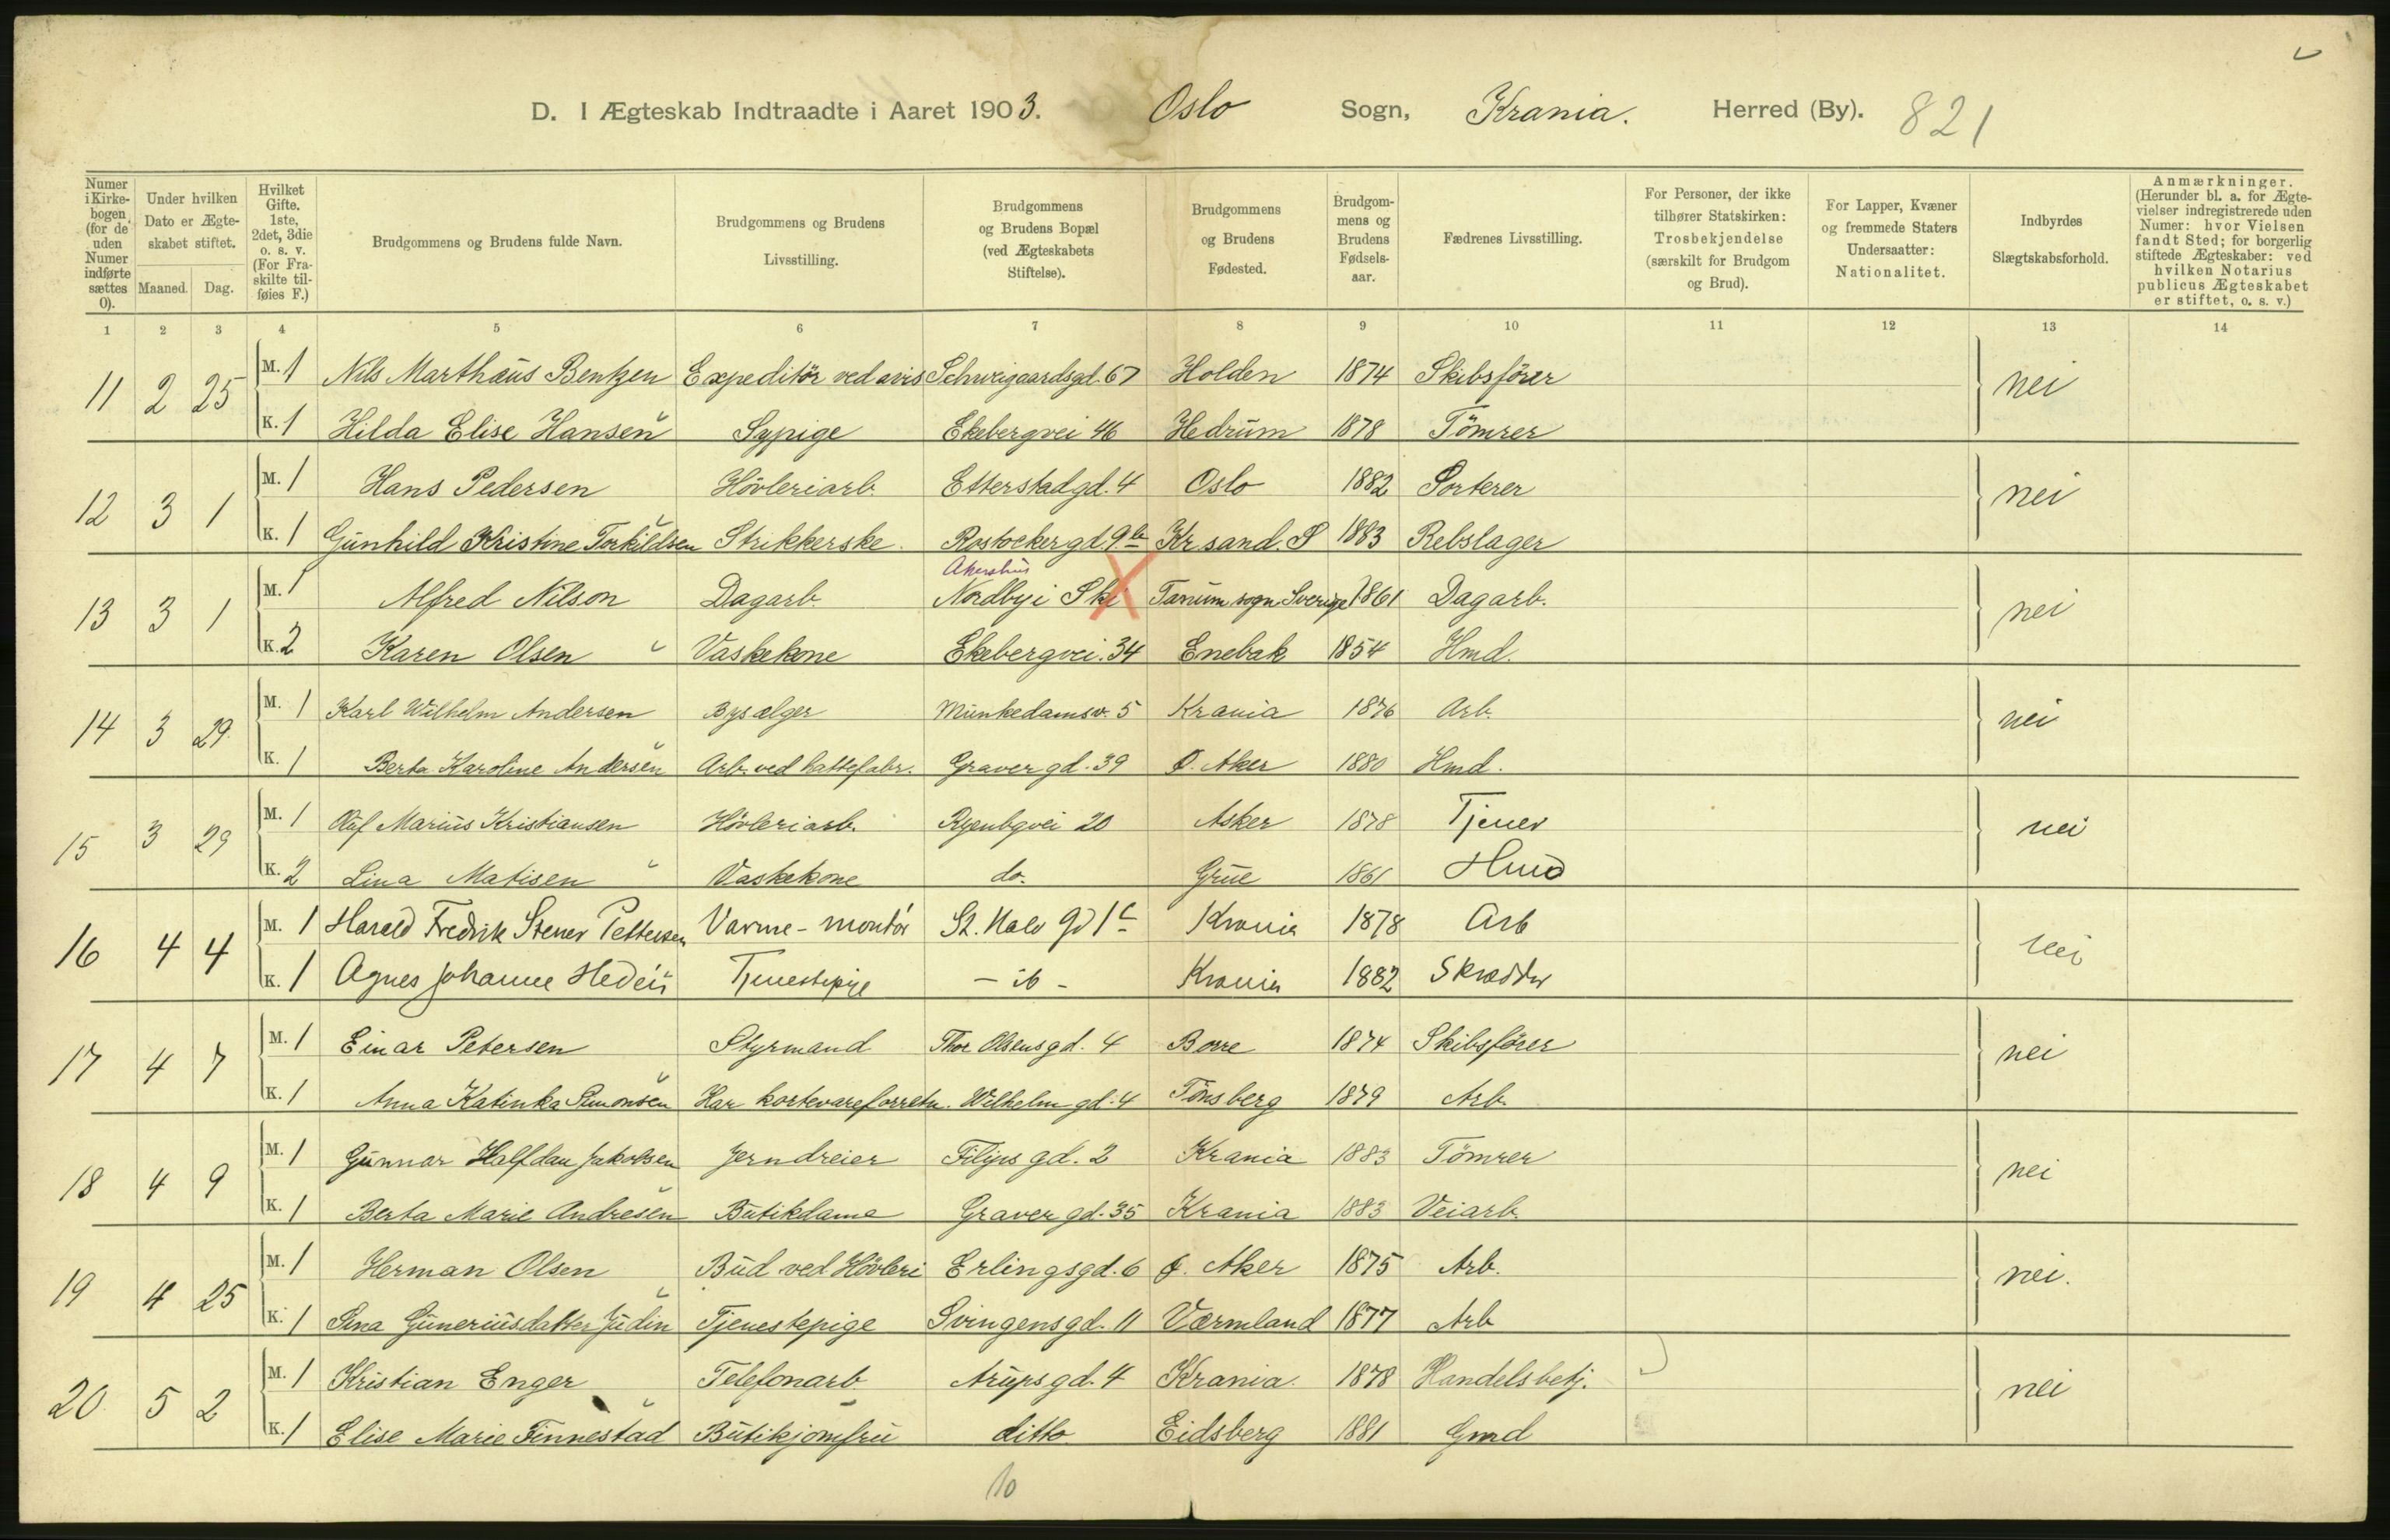 D. I Ægteskab Indtraadte i Aaret 1903. Oslo Sogn, Krania. Herred (By). 821
Numer i Kirkebogen (for de uden Numer indførte sættes 0).
Under hvilken Dato er Ægteskabet stiftet. Maaned. Dag.
Hvilket Gifte. 1ste, 2det, 3die o. s. v. (For Fraskilte tilføies F.)
Brudgommens og Brudens fulde Navn.
Brudgommens og Brudens Livsstilling.
Brudgommens og Brudens Bopæl (ved Ægteskabets Stiftelse).
Brudgommens og Brudens Fødested.
Brudgommens og Brudens Fødselsaar.
Fædrenes Livsstilling.
For Personer, der ikke tilhører Statskirken: Trosbekjendelse (særskilt for Brudgom og Brud).
For Lapper, Kvæner og fremmede Staters Undersaatter: Nationalitet.
Indbyrdes Slægtskabsforhold.
Anmærkninger. (Herunder bl. a. for Ægtevielser indregistrerede uden Numer: hvor Vielsen fandt Sted; for borgerlig stiftede Ægteskaber: ved hvilken Notarius publicus Ægteskabet er stiftet, o. s. v.)
1 2 3 4 5 6 7 8 9 10 11 12 13 14
11 2 25 M. 1 Nils Marthaus Bentzen Expeditör ved avis Schweigaardsgd. 67 Holden 1874 Skibsfører nei
K. 1 Hilda Elise Hansen Sypige Ekebergvei 46 Hedrum 1878 Tömrer
12 3 1 M. 1 Hans Pedersen Hövleriarb. Etterstadgd. 4 Oslo 1882 Sorterer nei
K. 1 Gunhild Kristine Torkildsen Strikkerske. Rostockergd. 9b Kr.sand. S 1883 Rebslager
Akershus
13 3 1 M. 1 Alfred Nilson Dagarb. Nordby i Ski X Tanum sogn Sverige 1861 Dagarb. nei
K. 2 Karen Olsen Vaskekone Ekebergvei. 34 Enebak 1854 Hmd.
14 3 29. M. 1 Karl Wilhelm Andersen Bysælger Munkedamsv. 5 Krania 1876 Arb. nei
K. 1 Berta Karoline Andersen Arb. ved hattefabr. Gravergd. 39 Ø. Aker 1880 Hmd.
15 3 29 M. 1 Oluf Marius Kristiansen Hövleriarb. Ryenbgvei 20 Asker 1878 Tjener nei
K. 2 Lina Matisen Vaskekone do. Grue 1861 Hmd
16 4 4 M. 1 Harald Fredrik Stener Pettersen Varme-montör St. Halv gd 1c Krania 1878 Arb nei
K. 1 Agnes Johanne Hedén Tjenestepige - ib - Krania 1882 Skrædder
17 4 7 M. 1 Einar Petersen Styrmand Thor Olsensgd. 4 Borre 1874 Skibsfører nei
K. 1 Anna Katinka Simonsen Har kortevareforretn. Wilhelmgd. 4 Tönsberg 1879 Arb.
18 4 9 M. 1 Gunnar Halfdan Jakobsen Jerndreier Filipsgd. 2 Krania 1883 Tömrer nei
K. 1 Berta Marie Andresen Butikdame Gravergd. 35 Krania 1883 Veiarb.
19 4 25 M. 1 Herman Olsen Bud ved Hövleri Erlingsgd. 6 Ø. Aker 1875 Arb. nei.
K. 1 Sina Guneriusdatter Judin Tjenestepige Svingensgd. 11 Værmland 1877 Arb
20 5 2 M. 1 Kristian Enger Telefonarb. Arupsgd. 4 Krania. 1878 Handelsbetj. nei
K. 1 Elise Marie Finnestad Butikjomfru ditto Eidsberg 1881 Gmd
10